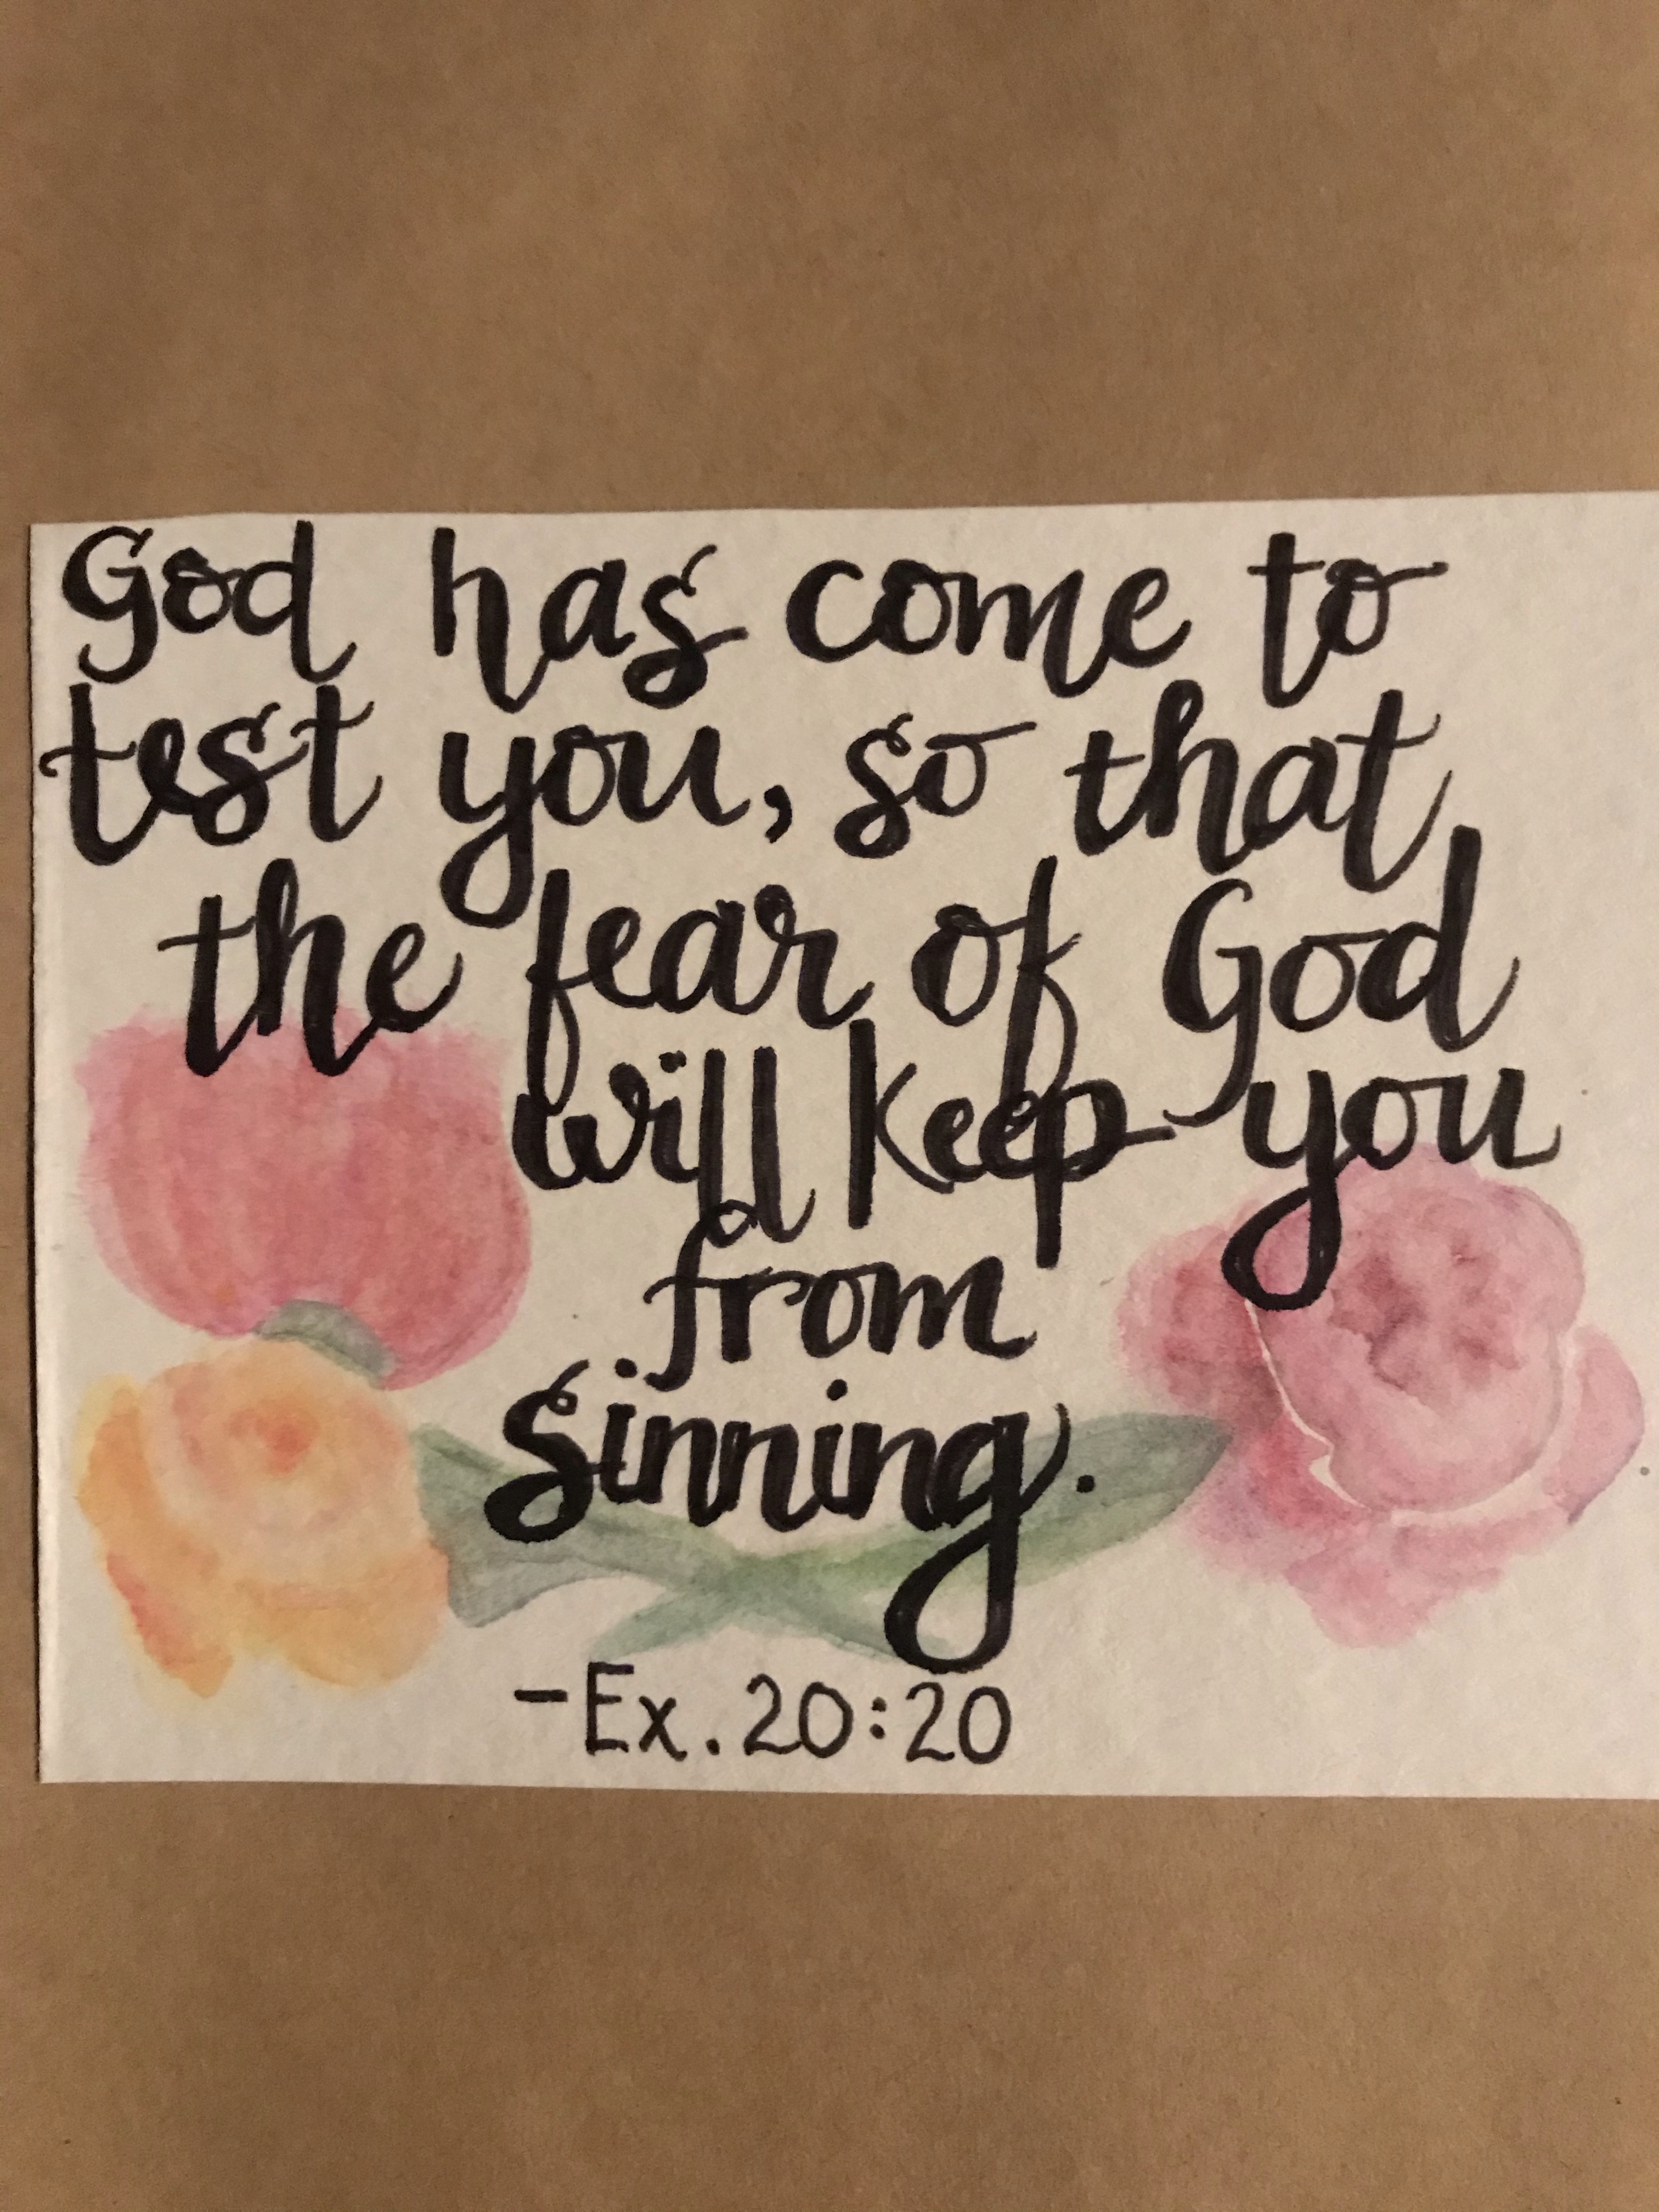 God has come to
test you, so that
the fear of God
will keep you
from
sinning.
-Ex. 20:20